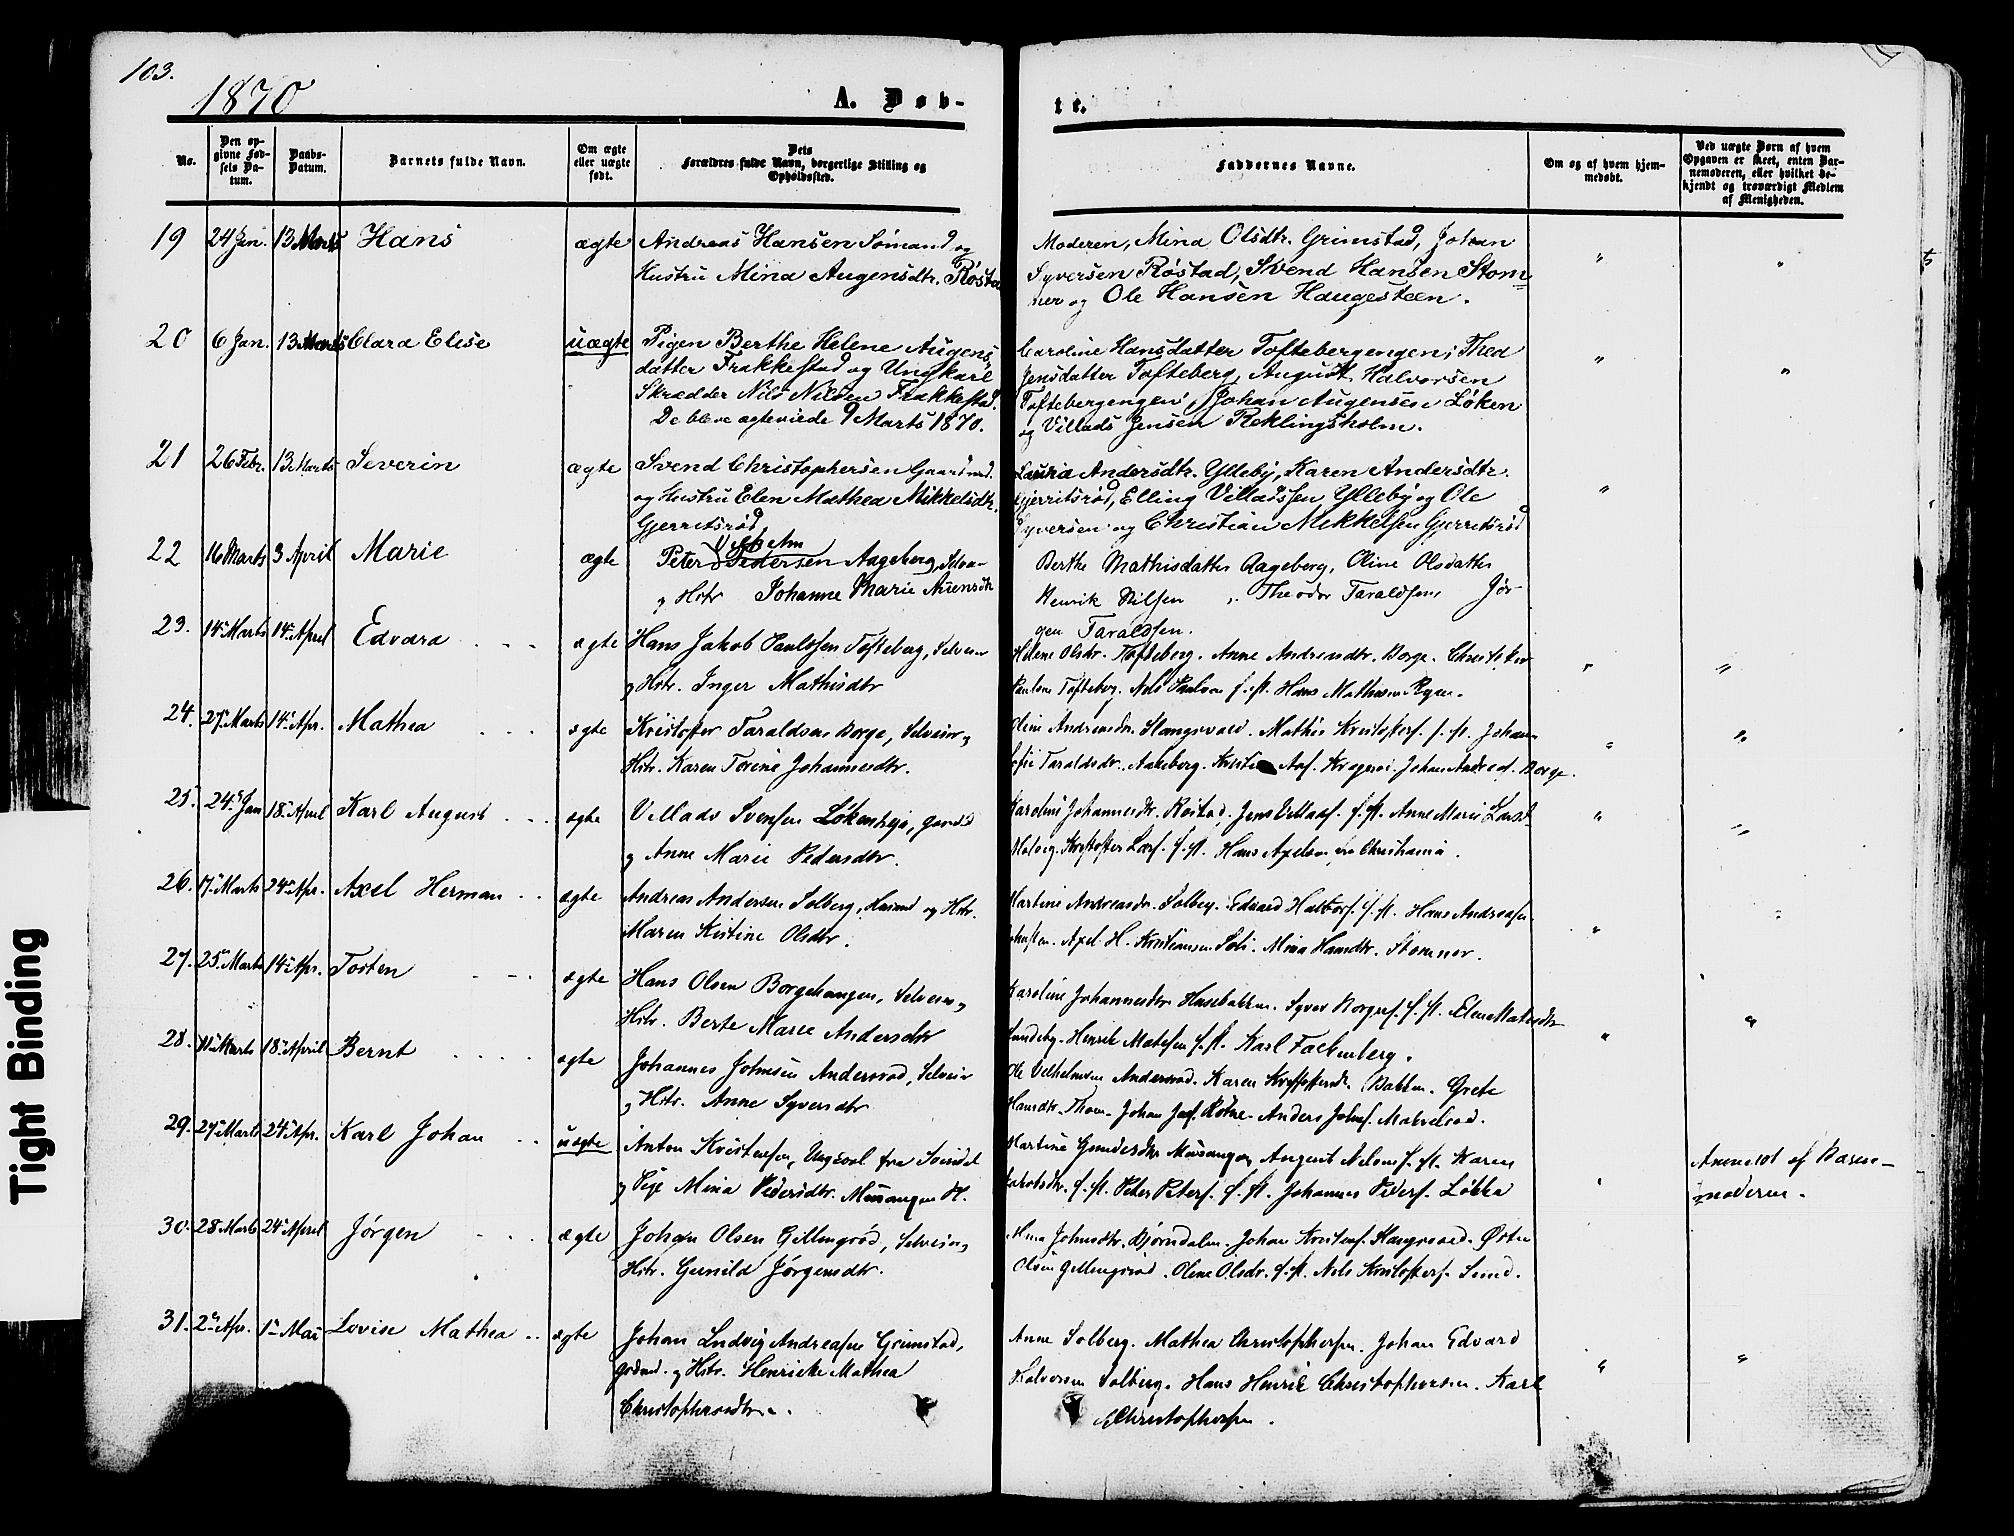 103.
1870
A. Døb-
te.
No.
Den op-
givne Fød-
sels Da-
tum.
Daabs-
Datum.
Barnets fulde Navn.
Om ægte
eller uægte
født.
Dets
Forældres fulde Navn, borgerlige Stilling og
Opholdssted.
Faddernes Navne.
Om og af hvem hjem-
medøbt.
Ved uægte Børn af hvem
Opgaven er skeet, enten Bar-
nemoderen, eller hvilket be-
kjendt og troværdigt Medlem
af Menigheden.
19 24 Jan. 13 Marts Hans ægte Andreas Hansen Sømand og
Hustru Mina Augensdtr. Røstad
Moderen, Mina Olsdtr. Grimstad, Johan
Syversen Røstad, Svend Hansen Stom-
ner og Ole Hansen Haugesteen.
20 6 Jan. 13 Marts Clara Elise uægte Pigen Berthe Helene Augens
datter Frakkestad og Ungkarl
Skrædder Nils Nilsen Frakkestad.
De bleve ægteviede 9 Marts 1870.
Caroline Hansdatter Toftebergengen, Thea
Jensdatter Tofteberg, August Halvorsen
Toftebergengen, Johan Augensen Løken
og Villads Jensen Reklingsholm.
21 26 Febr. 13 Marts Severin ægte Svend Christophersen Gaardmd.
og Hustru Elen Mathea Mikkelsdtr.
Gjerritsrød
Laura Andersdtr. Ylleby, Karen Andersdtr.
Gjerritsrød, Elling Villadssen Ylleby og Ole
Syversen og Christian Mikkelsen Gjerritsrød
22 16 Marts 3 April Marie ægte Peter Pedersen Aageberg, Selv-
og Hstr Johanne Marie
Berthe Mathisdatter Aageberg, Oline Olsdatter
Henrik Nilsen Theodor Taraldsen, Jør
gen Taraldsen.
23. 14 Marts 14 April Edvard ægte Hans Jakob Paulssen Tofteberg, Selveier
og Hstr. Inger Mathisdtr
Helene Olsdtr. Tofteberg. Anne Andreasdtr. Borge. Christofer
Paulsen Tofteberg. Nels Paulsen f. st. Hans Mathisen Rygen.
24. 27 Marts 14 Apr. Mathea ægte Kristofer Taraldsen Borge, Selveier og
Hstr. Karen Torine Johannesdtr.
Oline Andreasdtr. Slangsvold. Mathis Kristofers. f. st. Johan
Sofie Taraldsdtr. Aakeberg. Johan Andreas. Borge.
25. 24 Jan 18 April Karl August ægte Villads Svensen Løkenhøi, Gaardmd
og Anne Marie Pedersdtr.
Karoline Johannesdtr. Røstad. Jens Villads. f. st. Anne Marie
Kristofer Lars. f. st. Hans Axelsen fra Christiania.
26. 17 Marts 24 Apr. Axel Herman ægte Andreas Andersen Solberg, Husmd og Hstr.
Maren Kistine Olsdtr.
Martine Andreasdtr. Solberg. Edvard Halvors. f. st. Hans Andreassen
Axel H. Kristiansen Mina Hansdtr. Stomner.
27. 25 Marts 14 Apr. Torten ægte Hans Olsen Borgehaugen, Selveier og
Hstr. Berte Marie Andersdtr
Karoline Johannesdtr Husebakken. Syver Borges. f. st. Elene Matisdtr
Sundeby. Henrik Matisen f. st. Karl Falkenberg.
28. 11 Marts 18 April Bernt ægte Johannes Johnsen Andersrød, Selveier
og Hstr. Anne Syversdtr
Ole Vilhelmsen Andersrød. Karen Bakken. Grete
Hansdtr. Thom. Johan Anders Johns.
29. 27 Marts 24 Apr. Karl Johan uægte Anton Kristensen, Ungkarl fra Svindal
og Pige Mina Pedersdtr. Musangen
Martine Gundersdtr Musangen, August Nilsen f. st. Karen
Jakobsdtr. f. st. Peter Peters. f. st. Johannes Peders. Løkka
Anmeldt af Barne-
moderen.
30. 28 Marts 24 April Jørgen ægte Johan Olsen Gillingrød, Selveier og
Hstr. Gunild Jørgensdtr.
Mina Johnsdtr. Bjørndalen. Johan Kristens.
Olsen Gillingrød. Oline Olsdtr. f. st. Nels Kristofers. Sund.
31. 2 Apr. 1 Mai Lovise Mathea ægte Johan Ludvig Andreasen Grimstad,
Grdmd. og Hstr. Henricke Mathea
Christophersdtr.
Anne Solberg. Mathea Christophersen. Johan Edvard
Halvorsen Solberg. Hans Henrik Christophersen. Karl
Christophersen.
Tight Binding